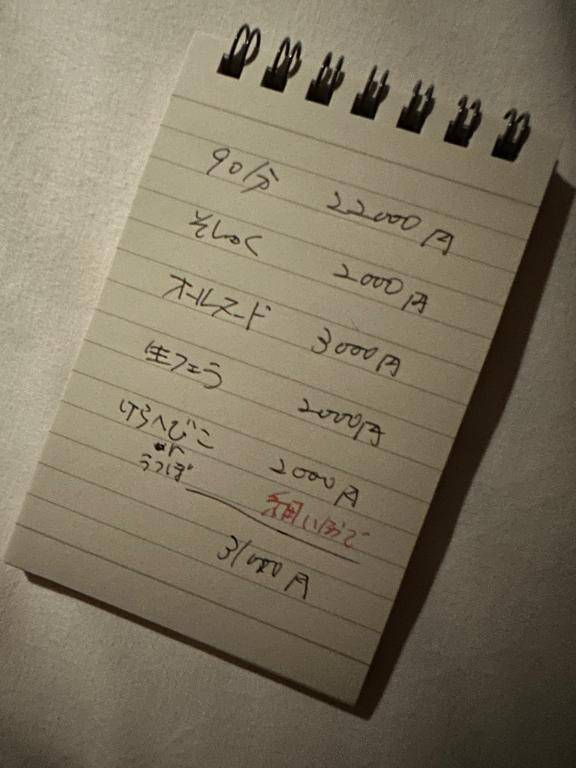 90分 22000円
そしゃく 2000円
オールヌード 3000円
生フェラ 2000円
2000円
or
うつぼ
31000円